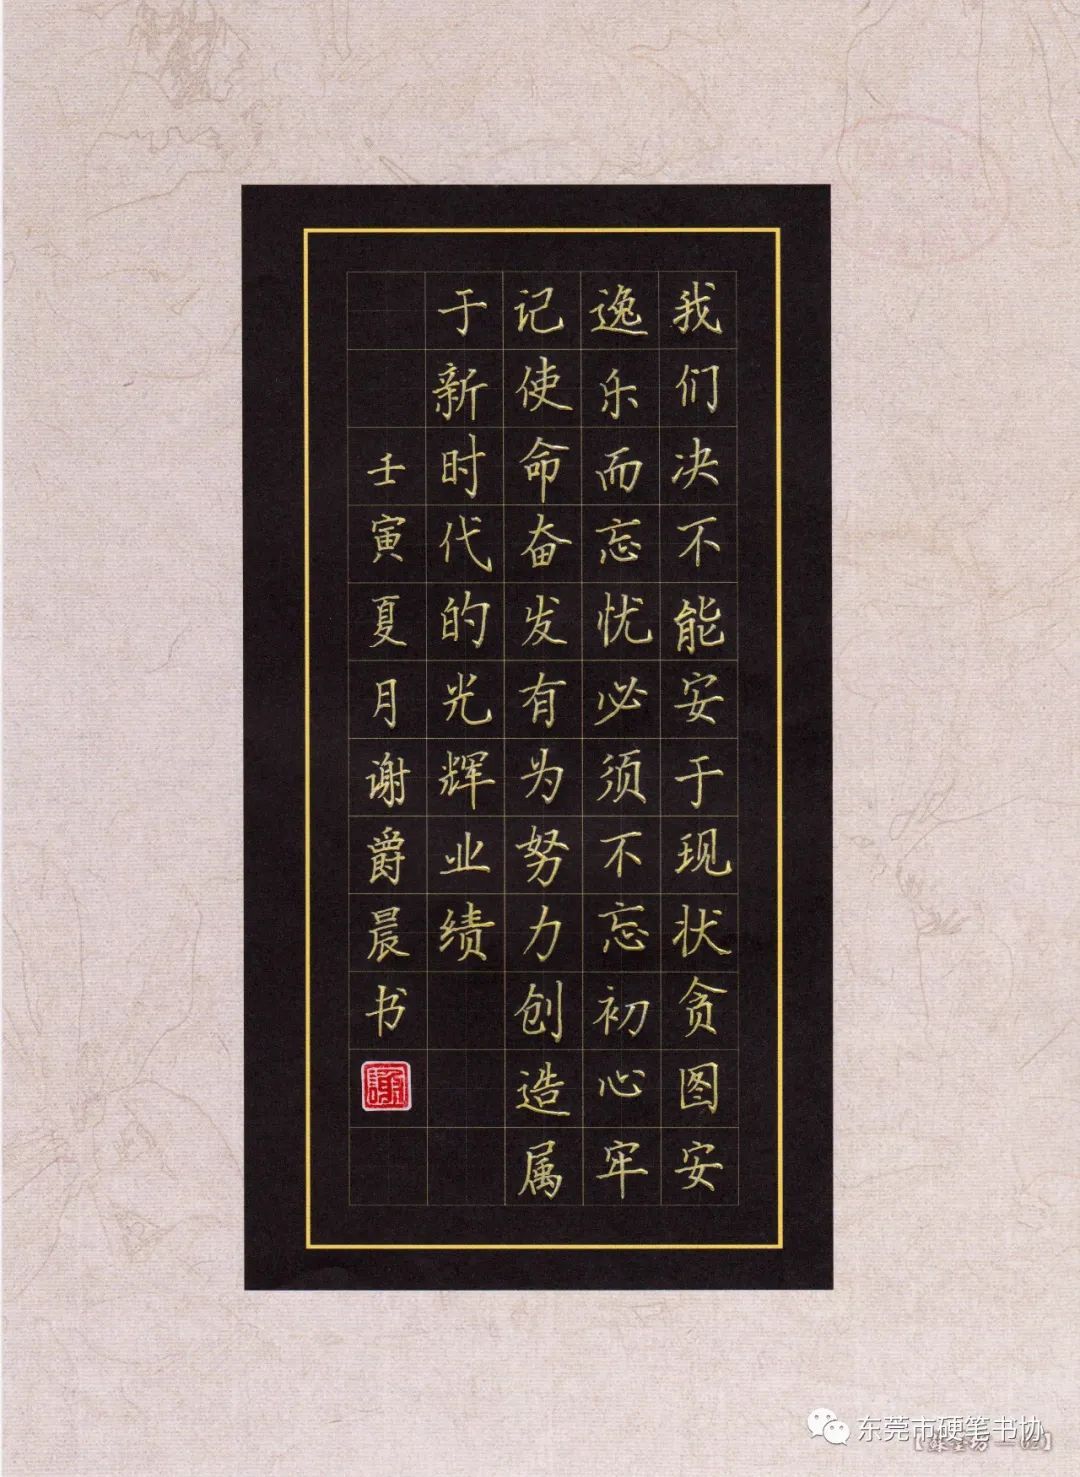 我们决不能安于现状贪图安
逸乐而忘忧必须不忘初心牢
记使命奋发有为努力创造属
于新时代的光辉业绩
壬寅夏月谢爵晨书
謝
东莞市硬笔书协